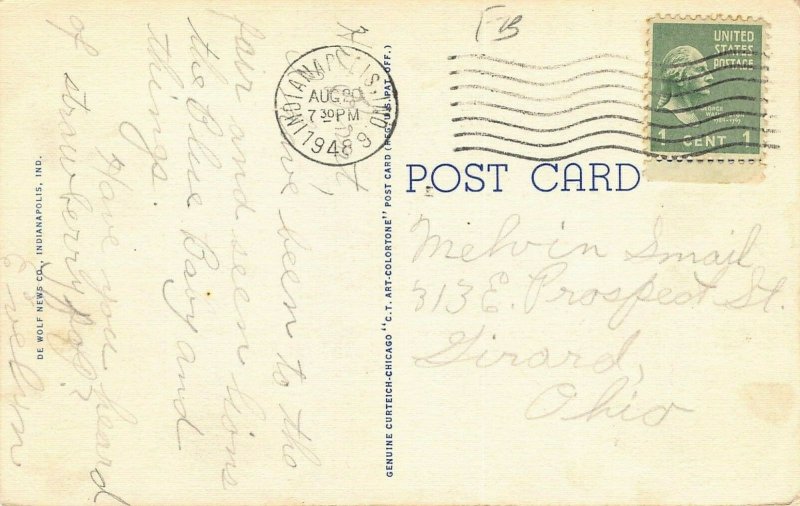 FB
UNITED
STATES
POSTAGE
GEORGE
1 CENT 1
INDIANAPOLIS, IND.
AUG 20
7 30 PM
1948
9
POST CARD
Melvin Smail
313 E. Prospect St.
Girard,
Ohio
been to the
fair and seen lions
the Blue Bary and
things.
Have you heard
of strawberry
Evelyn
GENUINE CURTEICH-CHICAGO "C.T. ART-COLORTONE" POST CARD (REG. U.S. PAT. OFF.)
DE WOLF NEWS CO., INDIANAPOLIS, IND.